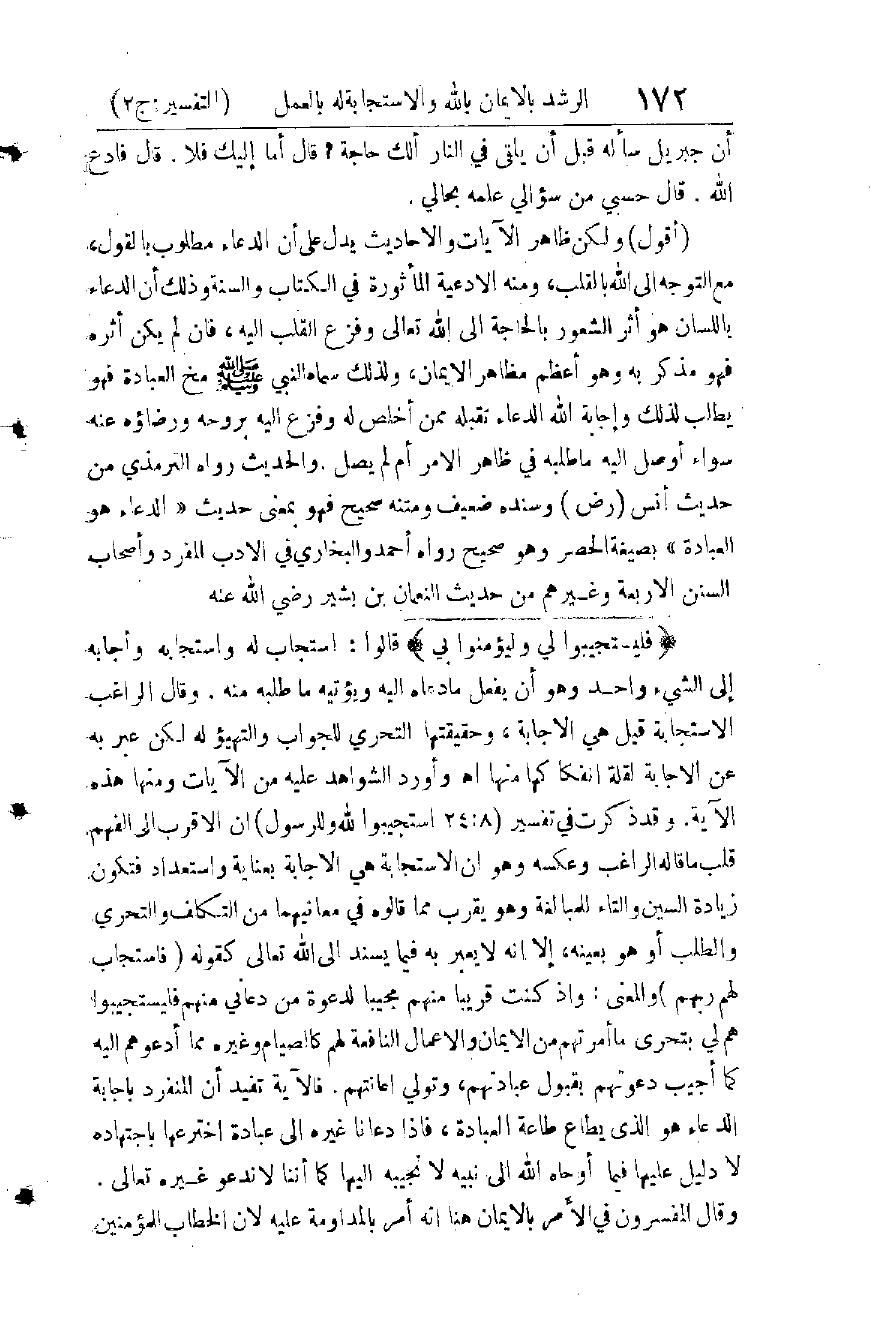 ١٧٢ الرشد بالايمان بالله والاستجابة له بالعمل (التفسير: ج٢)
أن جبريل سأله قبل أن يلقى في النار ألك حاجة ؟ قال أما إليك فلا . قال فادع
الله . قال حسبي من سؤالي علمه بحالي .
(أقول) ولكن ظاهر الآيات والاحاديث يدل على أن الدعاء مطلوب بالقول،
مع التوجه الى الله بالقلب، ومنه الادعية المأثورة في الكتاب والسنة وذلك أن الدعاء
باللسان هو أثر الشعور بالحاجة الى الله تعالى وفزع القلب اليه، فان لم يكن أثره
فهو مذكر به وهو أعظم مظاهر الايمان، ولذلك سماه النبي ﷺ مخ العبادة فهو
يطالب لذلك وإجابة الله الدعاء تقبله ممن أخلص له وفزع اليه بروحه ورضاؤه عنه
سواء أوصل اليه ماطلبه في ظاهر الامر أم لم يصل . والحديث رواه الترمذي من
حديث أنس (رض) وسنده ضعيف ومتنه صحيح فهو بمعنى حديث « الدعاء هو
العبادة » بصيغة الحصر وهو صحيح رواه أحمد والبخاري في الادب المفرد وأصحاب
السنن الاربعة وغيرهم من حديث النعمان بن بشير رضي الله عنه
﴿ فليستجيبوا لي وليؤمنوا بي ﴾ قالوا : استجاب له واستجابه وأجابه
إلى الشيء واحد وهو أن يفعل مادعاه اليه ويؤتيه ما طلبه منه . وقال الراغب
الاستجابة قيل هي الاجابة ، وحقيقتها التحري للجواب والتهيؤ له لكن عبر به
عن الاجابة لقلة انفكاكها منها اه وأورد الشواهد عليه من الآيات ومنها هذه
الآية. وقد ذكرت في تفسير (٢٤:٨ استجيبوا لله وللرسول) ان الاقرب الى الفهم
قلب ماقاله الراغب وعكسه وهو ان الاستجابة هي الاجابة بعناية واستعداد فتكون
زيادة السين والتاء للمبالغة وهو يقرب مما قالوه في معانيهما من التكلف والتحري
والطلب أو هو بعينه، إلا انه لايعبر به فيما يسند الى الله تعالى كقوله ( فاستجاب
لهم ربهم ) والمعنى : واذ كنت قريبا منهم مجيبا لدعوة من دعاني منهم فليستجيبوا
هم لي بتحرى ما أمرتهم من الايمان والاعمال النافعة لهم كالصيام وغيره مما أدعوهم اليه
كما أجيب دعوتهم بقبول عبادتهم، وتولي اعانتهم . فالآية تفيد أن المنفرد باجابة
الدعاء هو الذى يطاع طاعة العبادة ، فاذا دعانا غيره الى عبادة اخترعها باجتهاده
لا دليل عليها فيما أوحاه الله الى نبيه لا نجيبه اليها كما أننا لاندعو غيره تعالى .
وقال المفسرون في الأمر بالايمان هنا انه أمر بالمداومة عليه لان الخطاب للمؤمنين